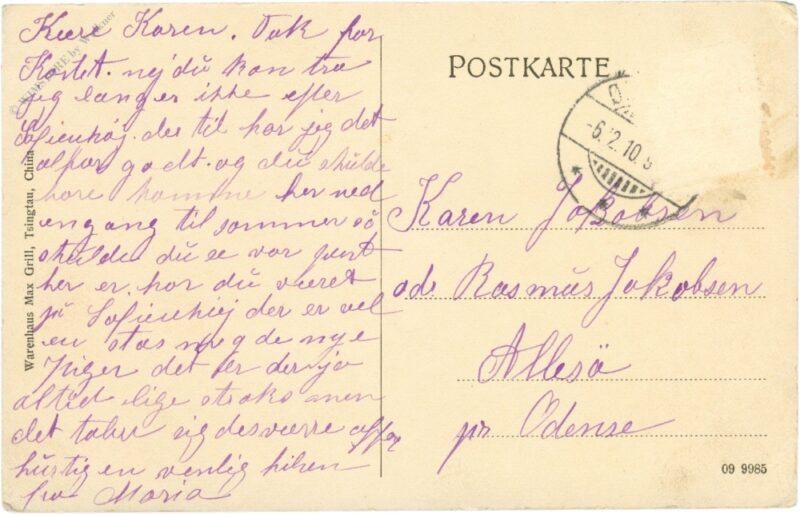 Kære Karen. Tak for
Kortet. nej du kan tro
jeg længer ikke efter
Sofienhøj. der til har jeg det
alfor godt. og du skulde
bare komme her ned
en gang til sommer så
skulde du se vor pænt
her er. har du været
på Sofienhøj der er vel
en stas med de nye
Piger det er der jo
altid lige straks men
det taber sig desværre
hurtig en venlig hilsen
fra Maria
POSTKARTE
-6.12.10.
Karen Jakobsen
adr Rasmus Jakobsen
Allesö
pr Odense
09 9985
Warenhaus Max Grill, Tsingtau, China